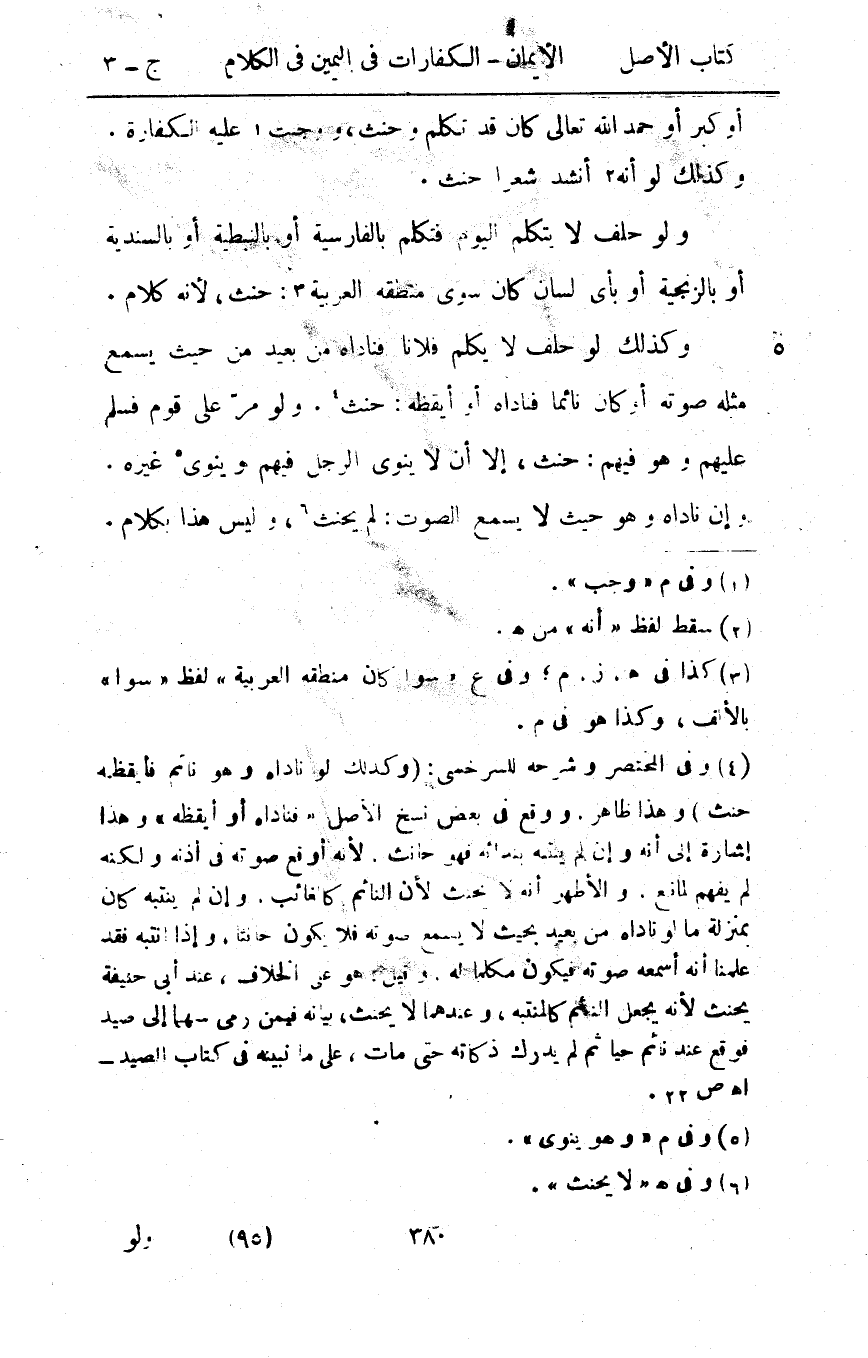 كتاب الأصل الأيمان - الكفارات فى اليمين فى الكلام ج - ٣
أو كبر أو حمد الله تعالى كان قد تكلم و حنث، و وجبت ١ عليه الكفارة .
و كذلك لو أنه٢ أنشد شعرا حنث .
و لو حلف لا يتكلم اليوم فتكلم بالفارسية أو بالنبطية أو بالسندية
أو بالزنجية أو بأى لسان كان سوى منطقه العربية ٣ : حنث ، لأنه كلام .
و كذلك لو حلف لا يكلم فلانا فناداه من بعيد من حيث يسمع ٥
مثله صوته أو كان نائما فناداه أو أيقظه : حنث٤ . و لو مرّ على قوم فسلم
عليهم و هو فيهم : حنث ، إلا أن لا ينوى الرجل فيهم و ينوى٥ غيره .
و إن ناداه و هو حيث لا يسمع الصوت : لم يحنث٦ ، و ليس هذا بكلام .
(١) و فى م « وجب » .
(٢) سقط لفظ « أنه » من ه .
(٣) كذا فى ه . ز . م ؛ و فى ع « سوا كان منطقه العربية » لفظ « سوا »
بالألف ، وكذا هو فى م .
(٤) و فى المختصر و شرحه للسرخسى : (وكذلك لو ناداه و هو نائم فأيقظه
حنث ) و هذا ظاهر . و وقع فى بعض نسخ الأصل « فناداه أو أيقظه » و هذا
إشارة إلى أنه و إن لم ينتبه بندائه فهو حانث . لأنه أوقع صوته فى أذنه و لكنه
لم يفهم لمانع . و الأظهر أنه لا يحنث لأن النائم كالغائب . و إن لم ينتبه كان
بمنزلة ما لو ناداه من بعيد بحيث لا يسمع صوته فلا يكون حانثا . و إذا انتبه فقد
علمنا أنه أسمعه صوته فيكون مكلما له . و قيل : هو على الخلاف ، عند أبى حنيفة
يحنث لأنه يجعل النائم كالمنتبه ، و عندهما لا يحنث ، بيانه فيمن رمى سهما إلى صيد
فوقع عند نائم حيا ثم لم يدرك ذكاته حتى مات ، على ما نبينه فى كتاب الصيد ـ
اه ص ٢٢ .
(٥) و فى م « و هو ينوى » .
(٦) و فى ه « لا يحنث » .
٣٨٠ (٩٥) ولو